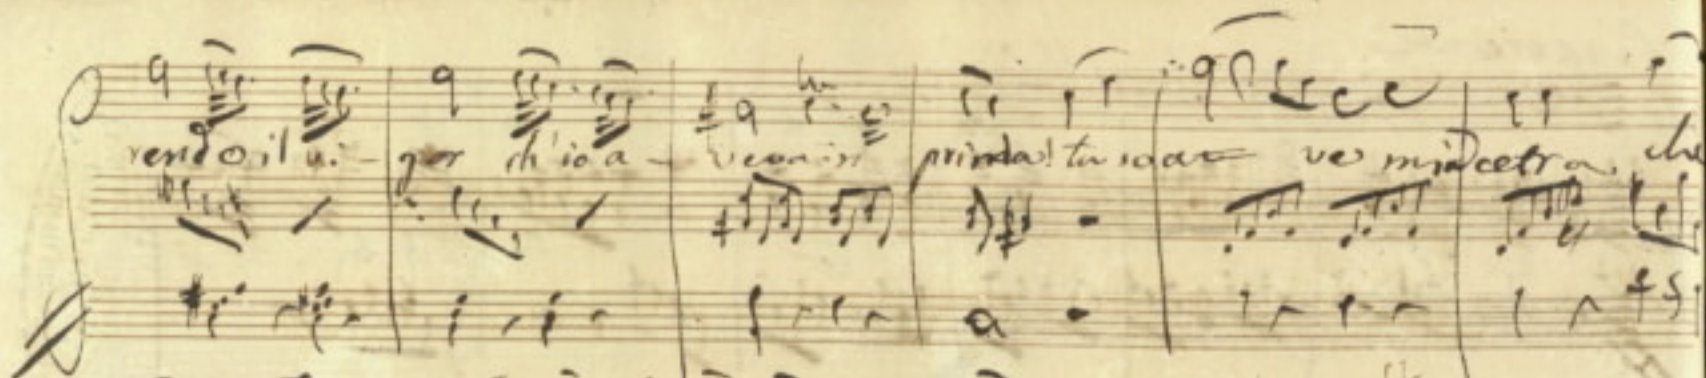 rendo il vi- gor ch'io a- vea in prima! tu soave mia cetra, che